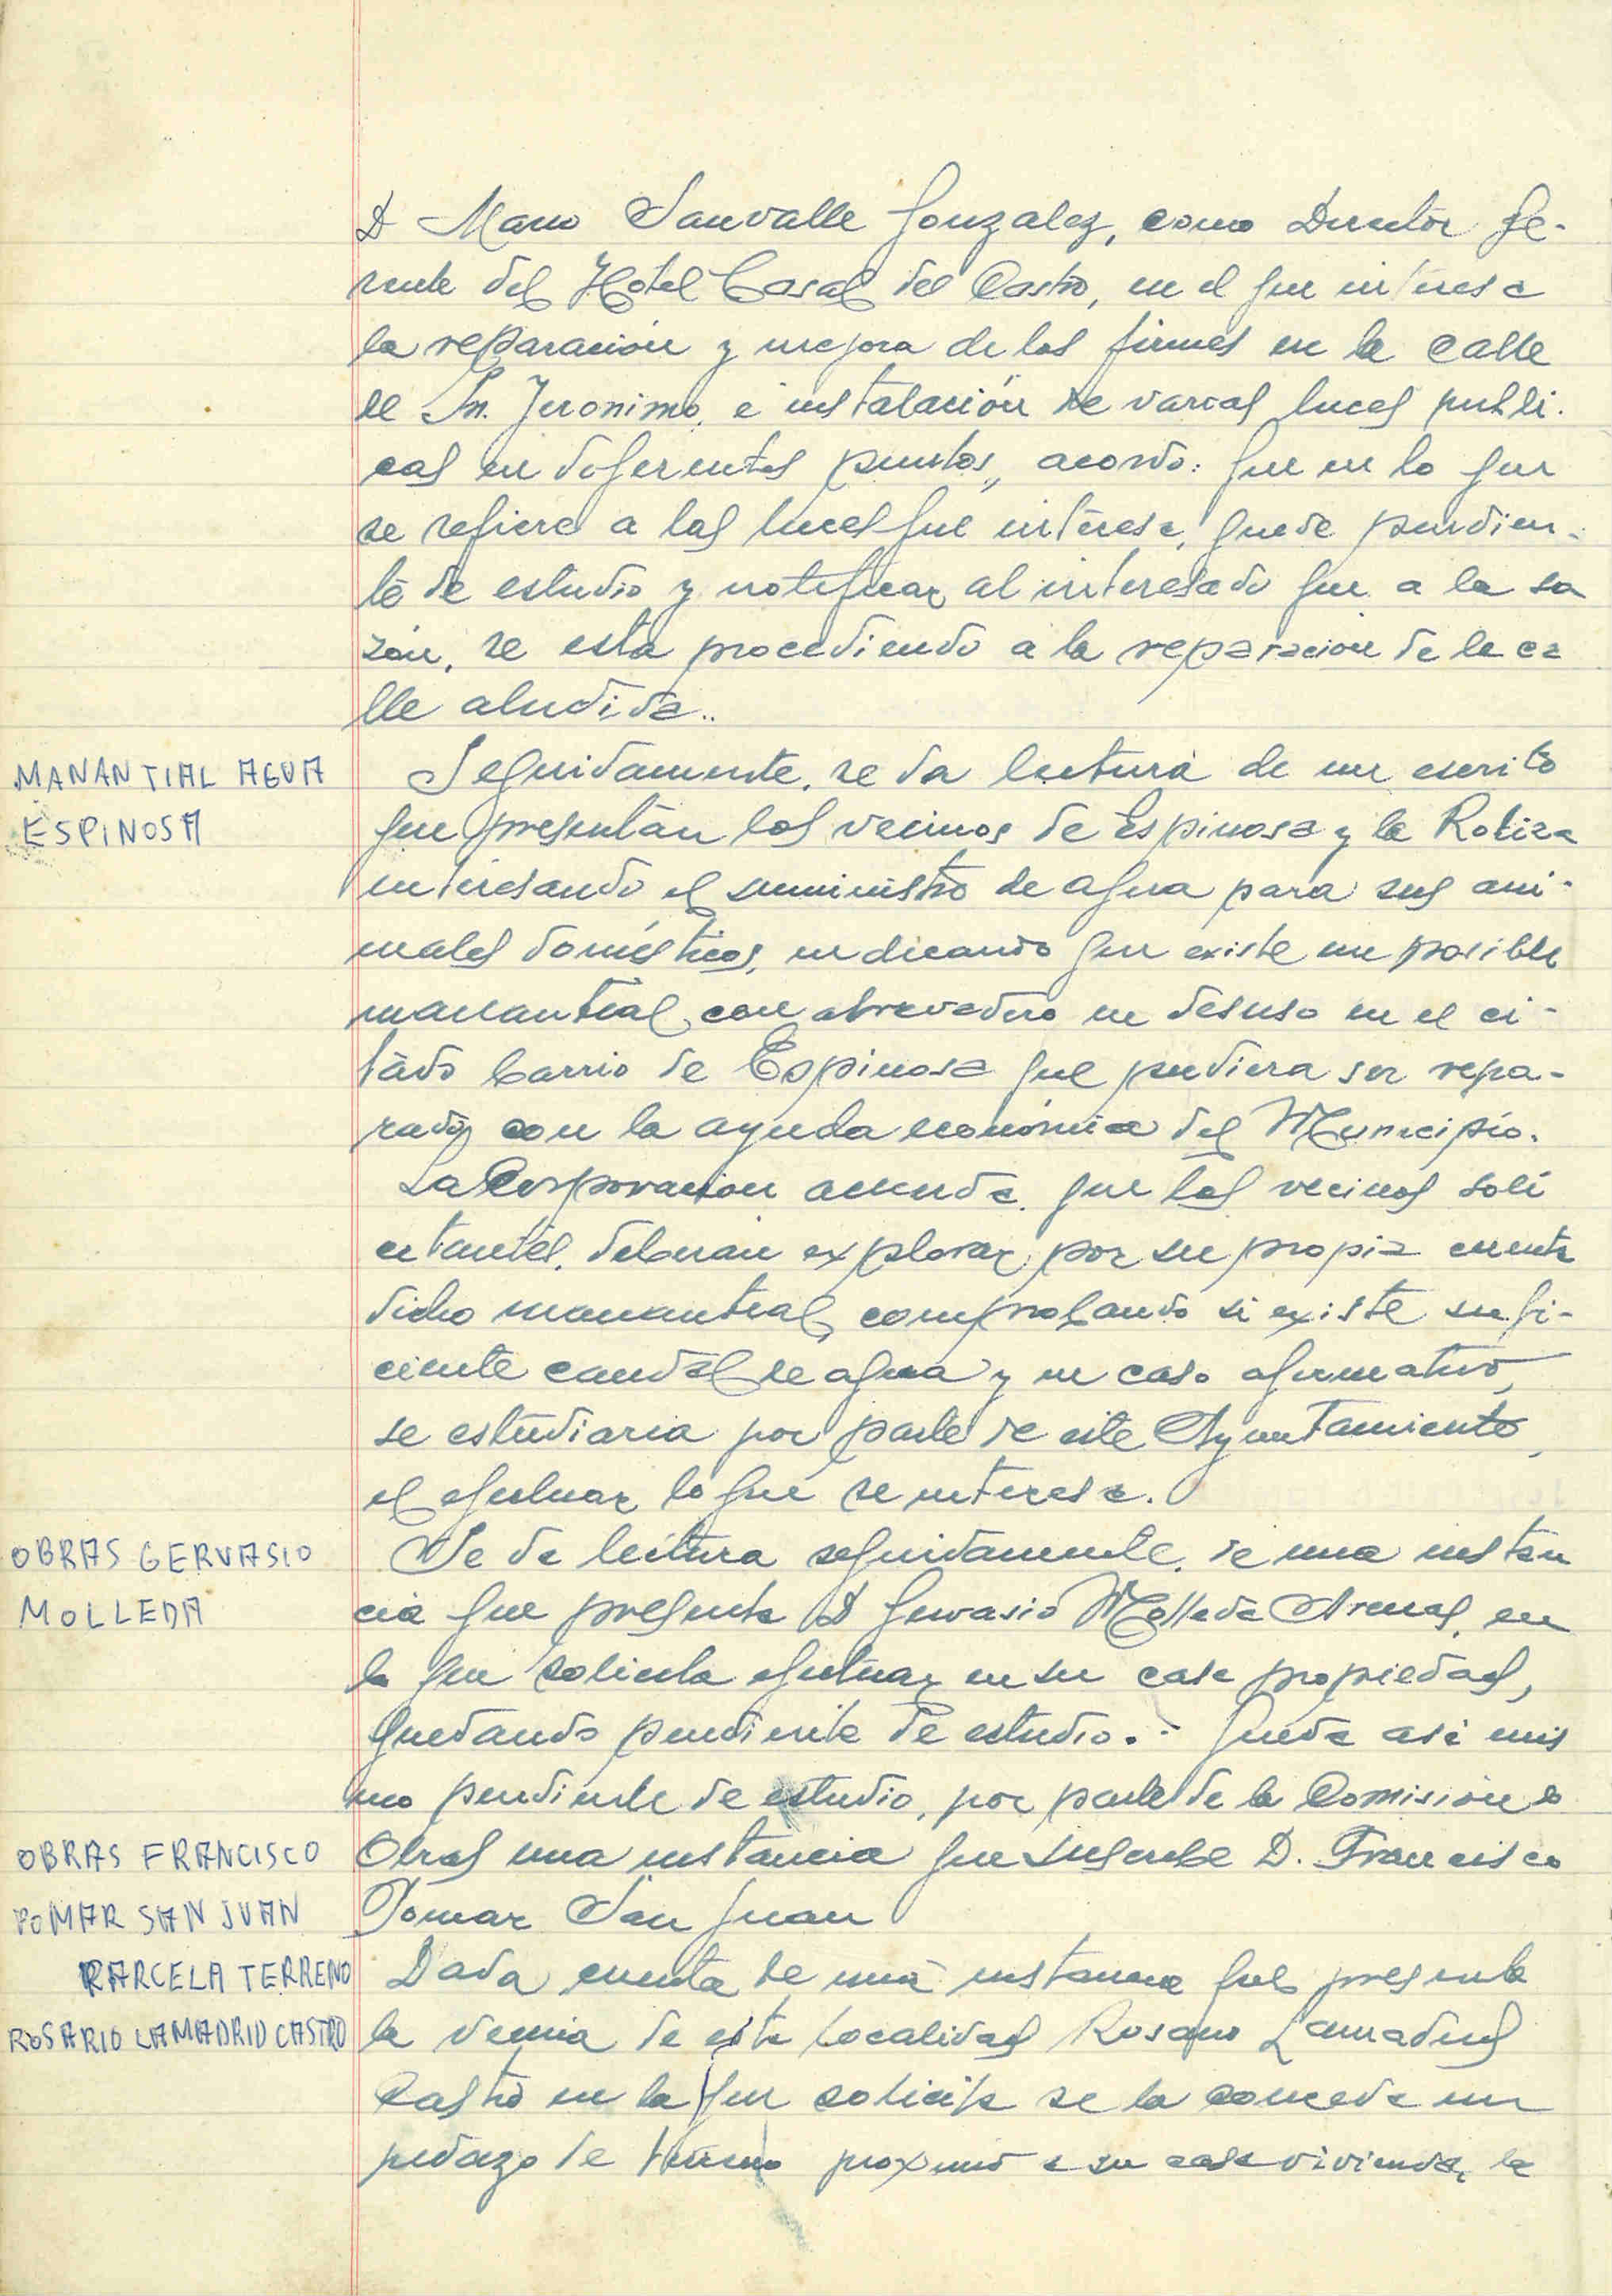 D Mario Sanvalle Gonzalez, como Director Ge-
rente del Hotel Casal del Castro, en el que interesa
la reparación y mejora de los firmes en la calle
de Sn. Jeronimo, e instalación de varias luces publi-
cas en diferentes puntos, acordo: que en lo que
se refiere a las luces que interesa, quede pendien-
te de estudio y notificar al interesado que a la sa
zón, se esta procediendo a la reparación de la ca
lle aludida..
MANANTIAL AGUA
ESPINOSA
Seguidamente, se da lectura de un escrito
que presentan los vecinos de Espinosa y la Robiza
interesando el suministro de agua para sus ani-
males domésticos, indicando que existe un posible
manantial con abrevadero en desuso en el ci-
tado barrio de Espinosa que pudiera ser repa-
rado con la ayuda económica del Municipio.
La Corporacion acuerda que los vecinos soli
citantes, deberán explorar por su propia cuenta
dicho manantial, comprobando si existe sufi-
ciente caudal de agua y en caso afirmativo,
se estudiaria por parte de este Ayuntamiento,
el efectuar lo que se interesa.
OBRAS GERVASIO
MOLLEDA
Se da lectura seguidamente, de una instan
cia que presenta D Gervasio Molleda Arenas, en
la que solicita efectuar en su casa propiedad,
quedando pendiente de estudio.- Queda asi mis
mo pendiente de estudio, por parte de la Comisión
OBRAS FRANCISCO
POMAR SAN JUAN
Obras una instancia que suscribe D. Francisco
Pomar San Juan
PARCELA TERRENO
ROSARIO LAMADRID CASTRO
Dada cuenta de una instancia que presenta
la vecina de esta localidad Rosario Lamadrid
Castro en la que solicita se la conceda un
pedazo de terreno proximo a su casa vivienda, la